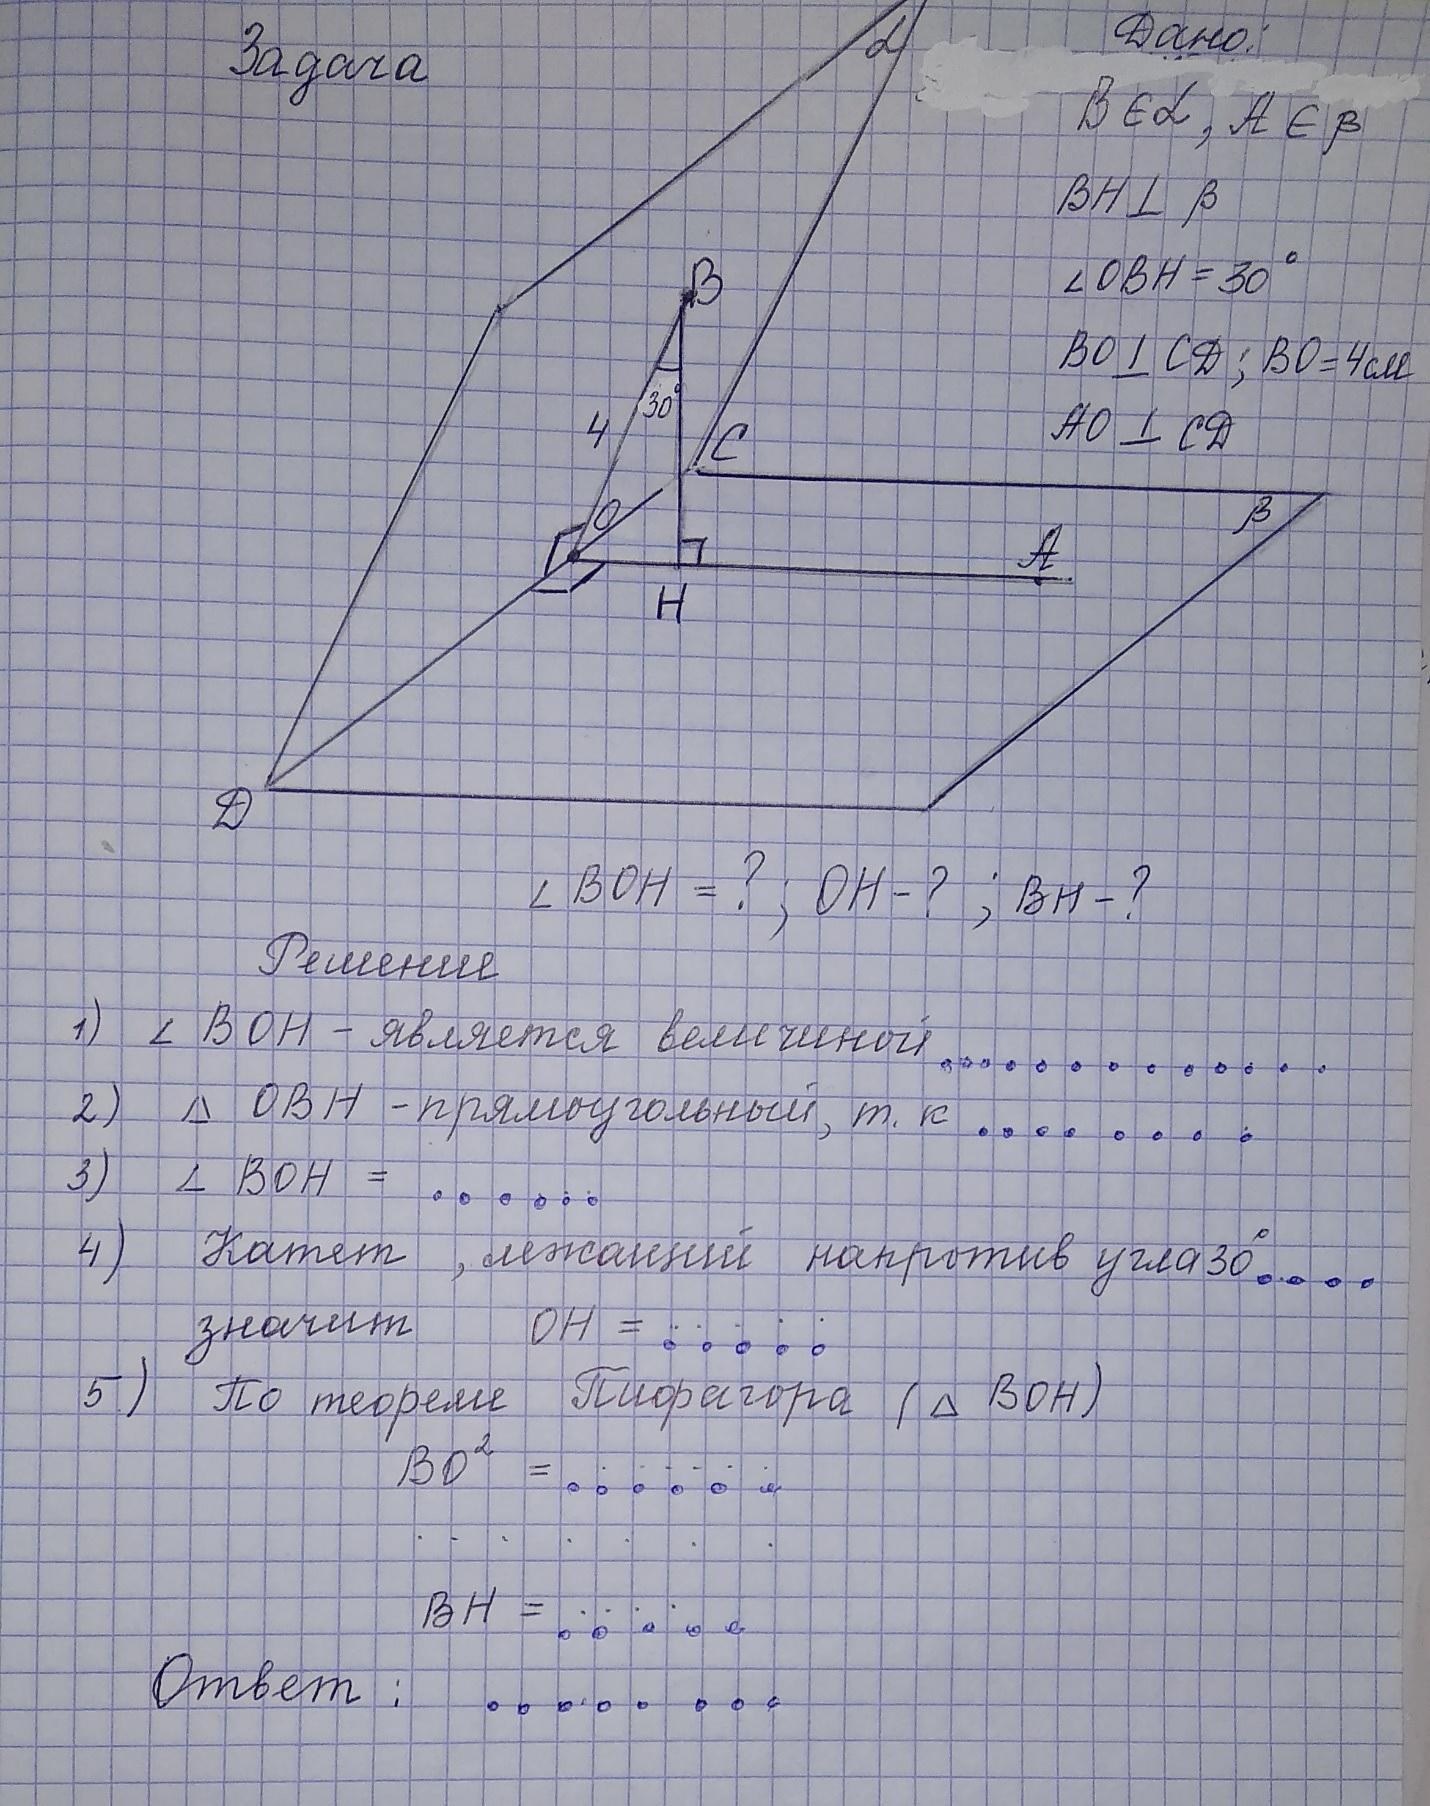 Задача
Дано:
B ∈ α, A ∈ β
BH ⊥ β
∠OBH = 30°
BO ⊥ CД; BO = 4 см
AO ⊥ CД
α
B
30°
4
C
O
β
A
H
Д
∠ BOH = ?; OH - ?; BH - ?
Решение
1) ∠ BOH - является величиной.............
2) △ OBH - прямоугольный, т. к ........
3) ∠ BOH = ......
4) Катет, лежащий напротив угла 30°....
значит OH = .....
5) По теореме Пифагора (△ BOH)
BO² = ......
.......
BH = .....
Ответ: ........